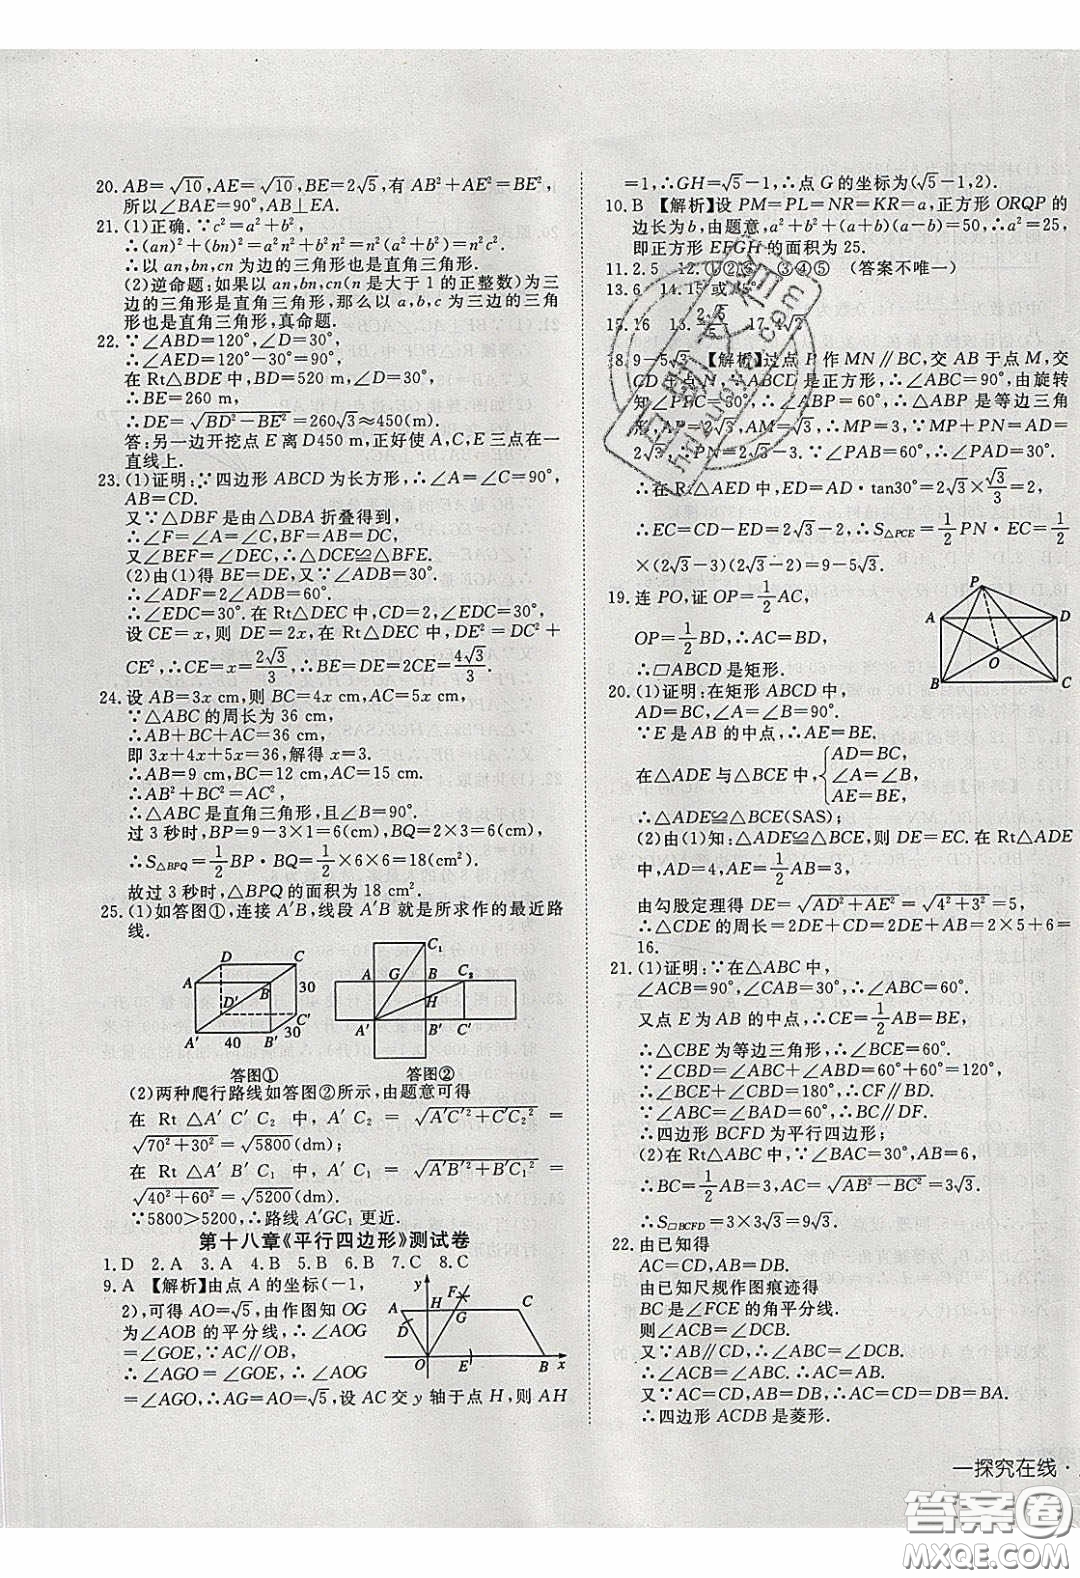 20. AB=√10, AE=√10, BE=2√5, 有 AB²+AE²=BE²,
所以∠BAE=90°, AB⊥EA.
21. (1)正确. ∵c²=a²+b²,
∴(an)²+(bn)²=a²n²+b²n²=n²(a²+b²)=n²c².
∴以 an,bn,cn 为边的三角形也是直角三角形.
(2)逆命题:如果以 an,bn,cn(n 是大于 1 的正整数)为三
边的三角形是直角三角形,那么以 a,b,c 为三边的三角
形也是直角三角形,真命题.
22. ∵∠ABD=120°, ∴∠DBE=60°.
∴∠BDE=30°.
在 Rt△BDE 中, BD=520 m, ∠BDE=30°,
∴BE=260 m,
∴DE=√(BD²−BE²)=260√3≈450(m).
答:另一边开挖点 E 离 D450 m,正好使 A,C,E 三点在一
直线上.
23. (1)证明:∵四边形 ABCD 为长方形, ∴∠A=∠C=90°,
AB=CD.
又∵△DBF 是由△DBA 折叠得到,
∴∠F=∠A=∠C, BF=AB=DC,
又∠BEF=∠DEC, ∴△DCE≌△BFE.
(2)由(1)得 BE=DE, ∴∠1=∠2=30°.
∴∠ADF=2∠ADB=60°.
∴∠EDC=30°. 在 Rt△DEC 中, CD=2, ∠EDC=30°.
设 CE=x, 则 DE=2x, 在 Rt△DEC 中, DE²=DC²+
CE², ∴CE=x=2√3/3, ∴BE=DE=4√3/3.
24. 设 AB=3x cm, 则 BC=4x cm, AC=5x cm,
∵△ABC 的周长为 36 cm,
∴AB+BC+AC=36,
即 3x+4x+5x=36, 解得 x=3.
∴AB=9 cm, BC=12 cm, AC=15 cm.
∴AB²+BC²=AC²,
∴△ABC 是直角三角形,且∠B=90°.
过 3 秒时, BP=9−3×1=6(cm), BQ=2×3=6(cm),
∴S△BPQ=1/2BP·BQ=1/2×6×6=18(cm²).
故过 3 秒时, △BPQ 的面积为 18 cm².
25. (1)如答图①, 连接 A′B, 线段 A′B 就是所求作的最近路
线.
D C A B D′ C′ A′ B′ 30 30 40
C₁ A G B C₂ H A′ B′ C′
答图① 答图②
(2)两种爬行路线如答图②所示,由题意可得
在 Rt △A′ C′ C₂ 中, A′C₂ = √(A′C′²+C′C₂²) =
√(70²+30²)=√5800(dm);
在 Rt △A′ B′ C₁ 中, A′C₁ = √(A′B′²+B′C₁²) =
√(40²+60²)=√5200(dm).
∵5800>5200, ∴路线 A′GC₁ 更近.
第十八章《平行四边形》测试卷
1. D 2. A 3. A 4. B 5. A 6. B 7. C 8. C
9. A 【解析】由点 A 的坐标(−1,
2),可得 AO=√5,由作图知 OG
为∠AOB 的平分线, ∴∠AOG
=∠GOE, ∵AC∥OB,
∴∠AGO = ∠GOE, ∴∠AOG
=∠AGO, ∴AG=AO=√5, 设 AC 交 y 轴于点 H, 则 AH
y F A H G C D O E B x
=1, ∴GH=√5−1, ∴点 G 的坐标为(√5−1,2).
10. B 【解析】设 PM=PL=NR=KR=a, 正方形 ORQP 的
边长为 b, 由题意, a²+b²+(a+b)(a−b)=50, ∴a²=25,
即正方形 EFGH 的面积为 25.
11. 2.5 12. ①②⑥ ③④⑤ (答案不唯一)
13. 6 14. 15 或
15. 16
18. 9−5√3 【解析】过点 P 作 MN∥BC, 交 AB 于点 M, 交
CD 于点 N, ∵ABCD 是正方形, ∴∠ABC=90°, 由旋转
知∠PBC=30°, ∴∠ABP=60°, ∴△ABP 是等边三角
形, ∴AP=2√3, AM=√3, ∴MP=3, ∵MP+PN=AD=
2√3, ∴PN=2√3−3. ∵∠PAB=60°, ∴∠PAD=30°.
∴在 Rt△AED 中, ED=AD·tan30°=2√3×√3/3=2,
∴EC=CD−ED=2√3−2, ∴S△PCE=1/2PN·EC=1/2
×(2√3−3)(2√3−2)=9−5√3.
19. 连 PO, 证 OP=1/2AC,
OP=1/2BD, ∴AC=BD.
∴□ABCD 是矩形.
P A D O B C
20. (1)证明:在矩形 ABCD 中,
AD=BC, ∠A=∠B=90°.
∵E 是 AB 的中点, ∴AE=BE,
在△ADE 与△BCE 中, { AD=BC, ∠A=∠B, AE=BE,
∴△ADE≌△BCE(SAS);
(2)由(1)知: △ADE≌△BCE, 则 DE=EC. 在 Rt△ADE
中, AD=4, AE=1/2AB=3,
由勾股定理得 DE=√(AD²+AE²)=√(4²+3²)=5,
∴△CDE 的周长=CD+2DE=2DE+AB=2×5+6=
16.
21. (1)证明:∵在△ABC 中,
∠ACB=90°, ∠CAB=30°, ∴∠ABC=60°.
又点 E 为 AB 的中点, ∴CE=1/2AB=BE,
∴△CBE 为等边三角形, ∴∠BCE=60°.
∴∠CBD=∠ABC+∠ABD=60°+60°=120°,
∴∠BCE+∠CBD=180°, ∴CF∥BD.
∵∠ABC=∠BAD=60°, ∴BC∥DF.
∴四边形 BCFD 为平行四边形;
(2)在 Rt△ABC 中, ∵∠BAC=30°, AB=6,
∴BC=1/2AB=3, AC=√(AB²−BC²)=3√3.
∴S□BCFD=3×3√3=9√3.
22. 由已知得
AC=CD, AB=DB.
由已知尺规作图痕迹得
BC 是∠FCE 的角平分线.
则∠ACB=∠DCB.
又∵AB∥CD, ∴∠ABC=∠DCB.
∴∠ACB=∠ABC. ∴AC=AB.
又∵AC=CD, AB=DB, ∴AC=CD=DB=BA.
∴四边形 ACDB 是菱形.
一探究在线·
答案圈
MXQE.COM